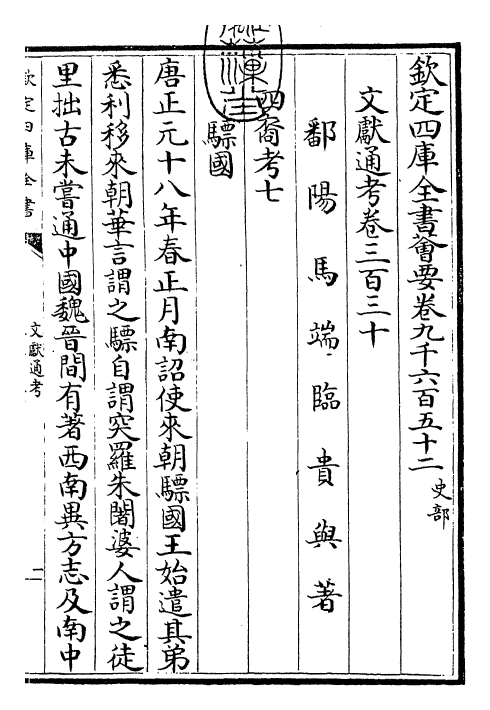 欽定四庫全書薈要卷九千六百五十二 史部
文獻通考卷三百三十
鄱陽馬端臨貴與著
四裔考七
驃國
唐正元十八年春正月南詔使來朝驃國王始遣其弟
悉利移來朝華言謂之驃自謂突羅朱闍婆人謂之徒
里拙古未嘗通中國魏晉間有著西南異方志及南中
欽定四庫全書
文獻通考